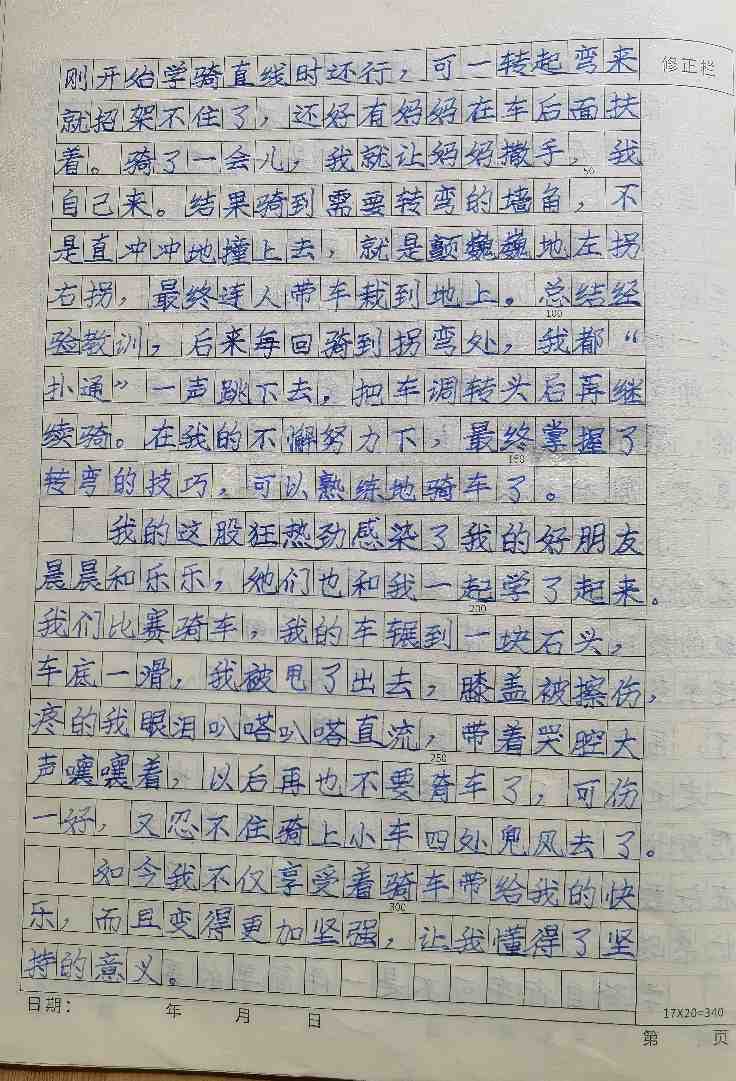 刚开始学骑直线时还行，可一转起弯来
修正栏
就招架不住了，还好有妈妈在车后面扶
着。骑了一会儿，我就让妈妈撒手，我
50
自己来。结果骑到需要转弯的墙角，不
是直冲冲地撞上去，就是颤巍巍地左拐
右拐，最终连人带车栽到地上。总结经
100
验教训，后来每回骑到拐弯处，我都“
扑通”一声跳下去，把车调转头后再继
续骑。在我的不懈努力下，最终掌握了
150
转弯的技巧，可以熟练地骑车了。
我的这股狂热劲感染了我的好朋友
晨晨和乐乐，她们也和我一起学了起来。
200
我们比赛骑车，我的车辗到一块石头，
车底一滑，我被甩了出去，膝盖被擦伤，
疼的我眼泪叭嗒叭嗒直流，带着哭腔大
250
声嚷嚷着，以后再也不要骑车了，可伤
一好，又忍不住骑上小车四处兜风去了。
如今我不仅享受着骑车带给我的快
300
乐，而且变得更加坚强，让我懂得了坚
持的意义。
日期： 年 月 日
17X20=340
第 页